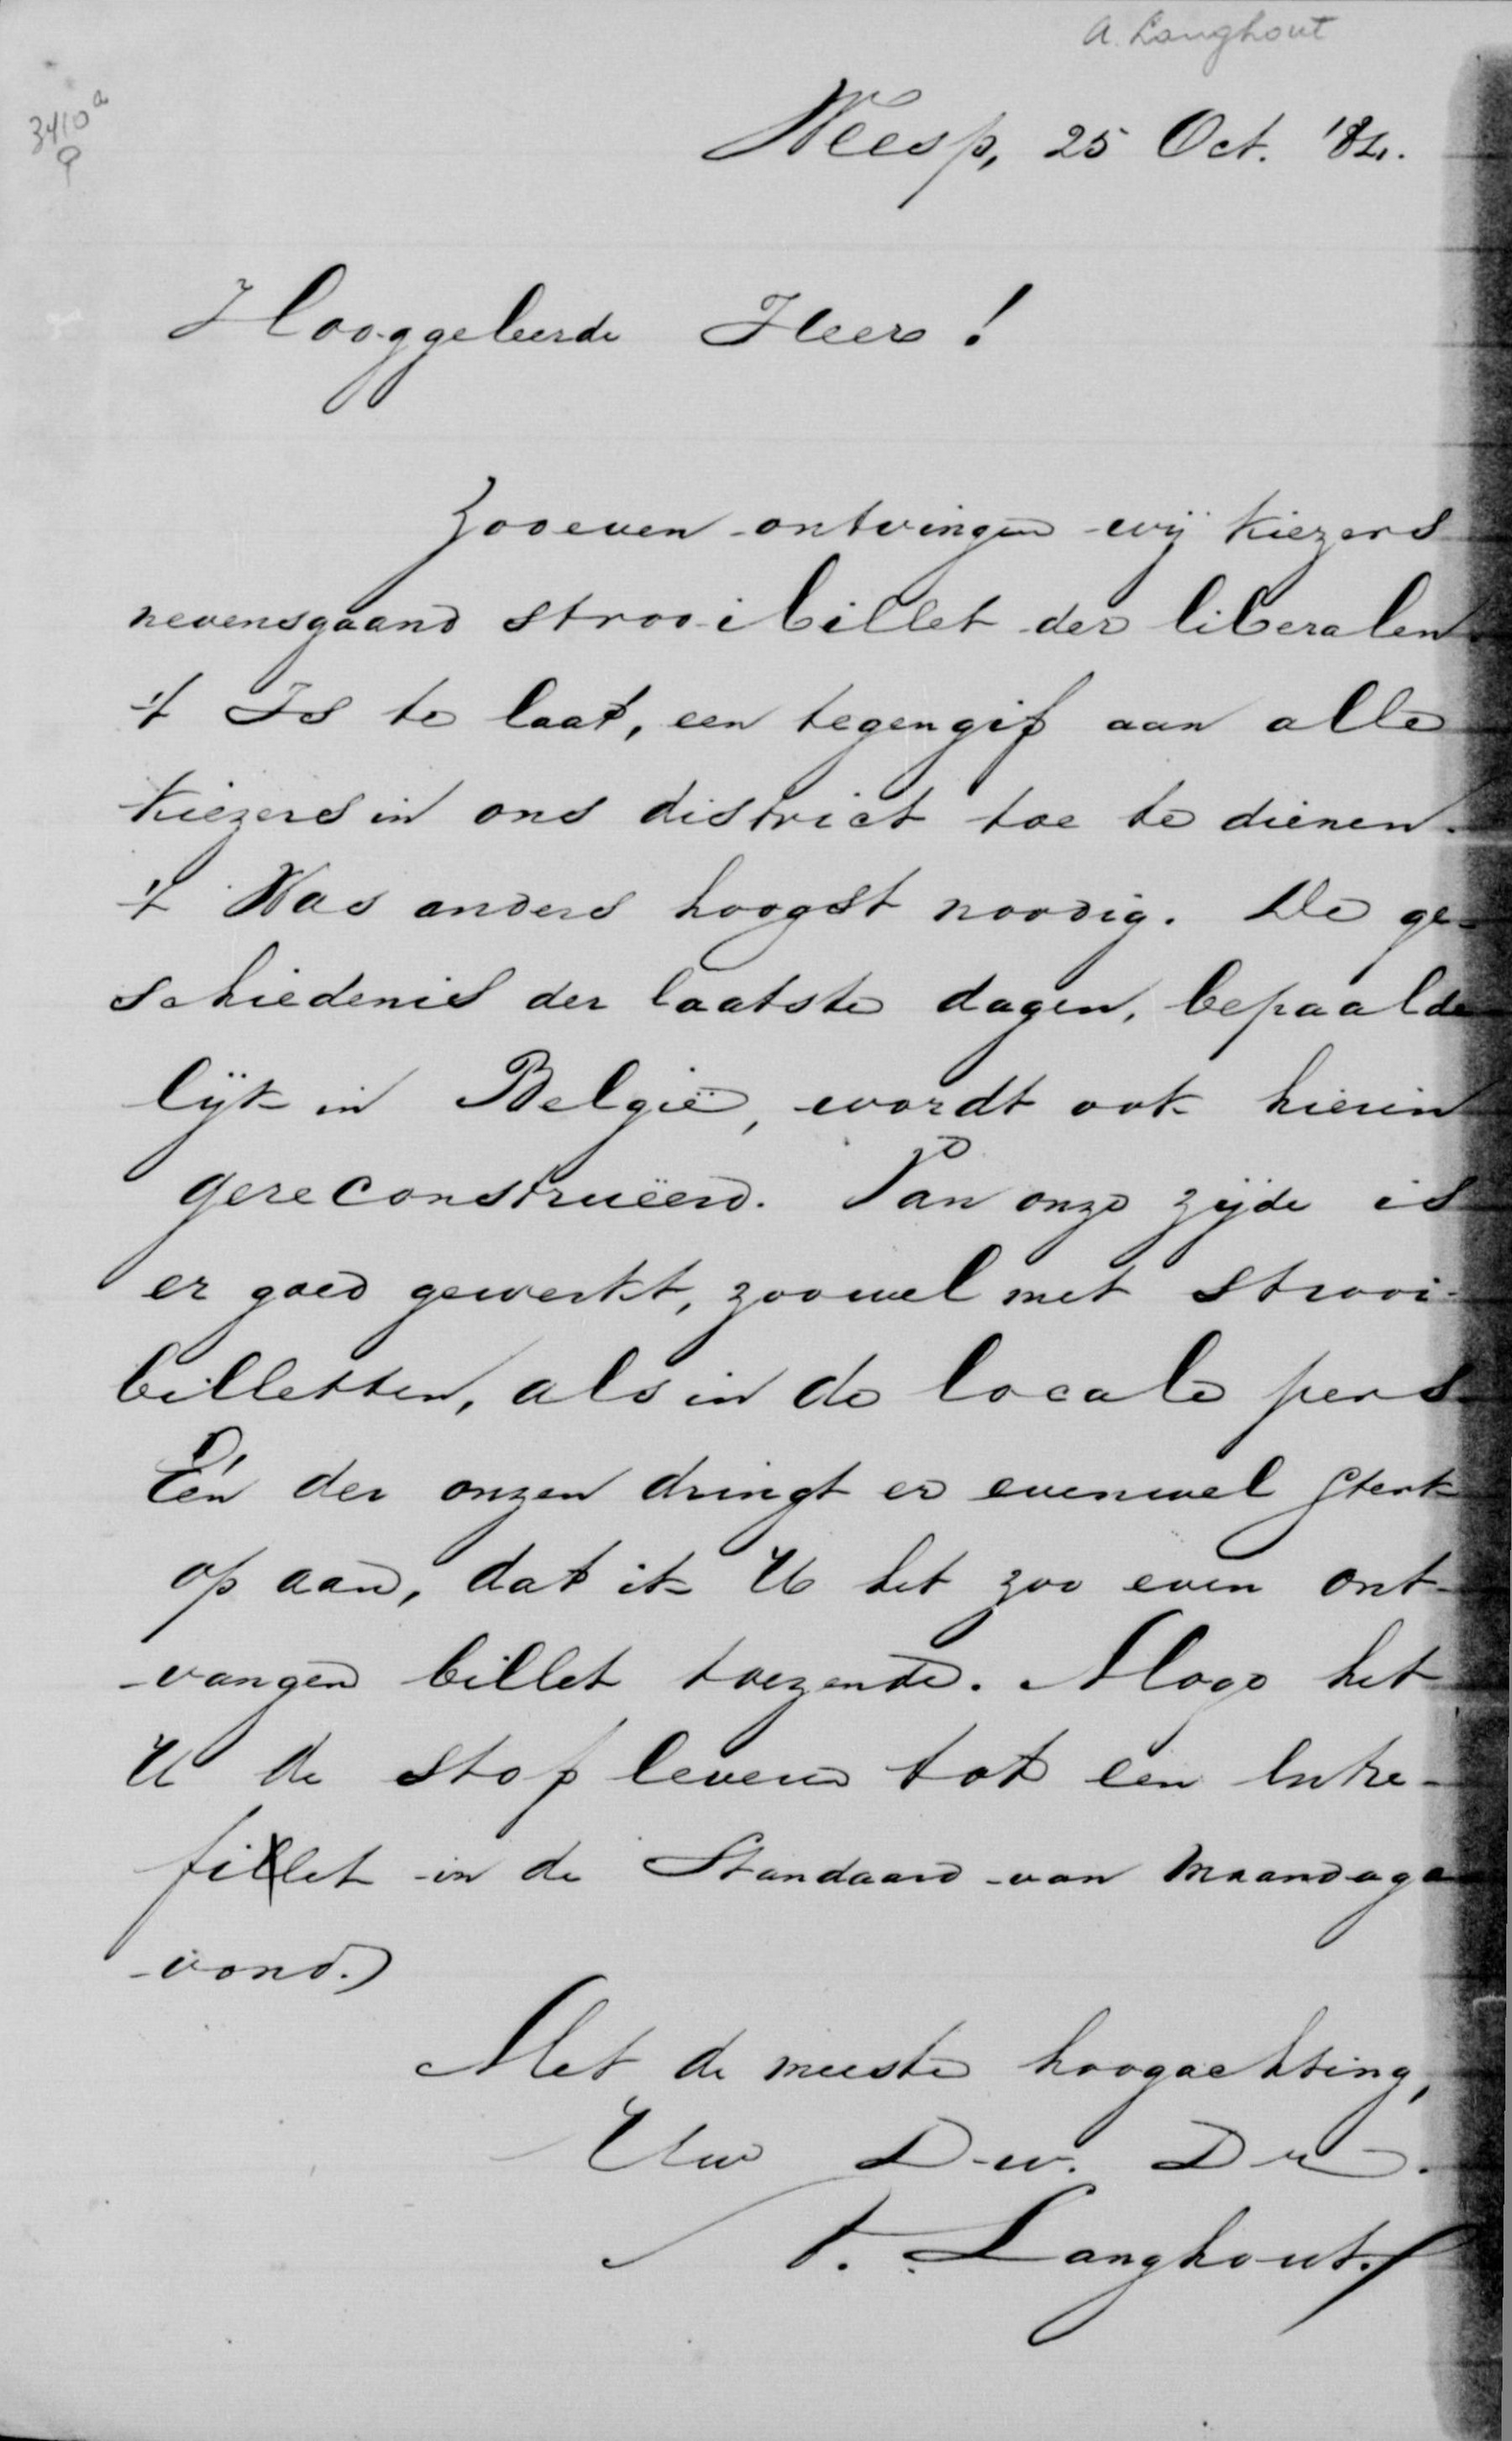 A. Langhout
3410a
Weesp, 25 Oct. '84.
Hooggeleerde Heer!
Zooeven ontvingen wij kiezers
nevensgaand strooibillet der liberalen.
't Is te laat, een tegengif aan alle
kiezers in ons district toe te dienen.
't Was anders hoogst noodig. De ge-
schiedenis der laatste dagen, bepaalde
lijk in België, wordt ook hierin
gereconstrueerd. Van onze zijde is
er goed gewerkt, zoowel met strooi-
billetten, als in de locale pers
Eén der onzen dringt er evenwel sterk
op aan, dat ik U het zoo even ont-
vangen billet toezende. Moge het
U de stof leveren tot een entre-
filet in de Standaard van Maandaga
vond.
Met de meeste hoogachting,
Uw Dw. Dr.
A. Langhout.